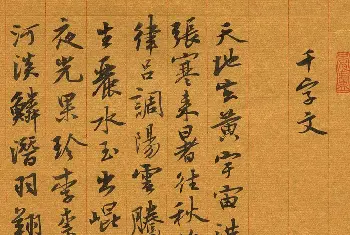 千字文
天地玄黃宇宙洪
張寒來暑往秋
律呂調陽雲騰
生麗水玉出崐
夜光果珍李柰
河淡鱗潛羽翔